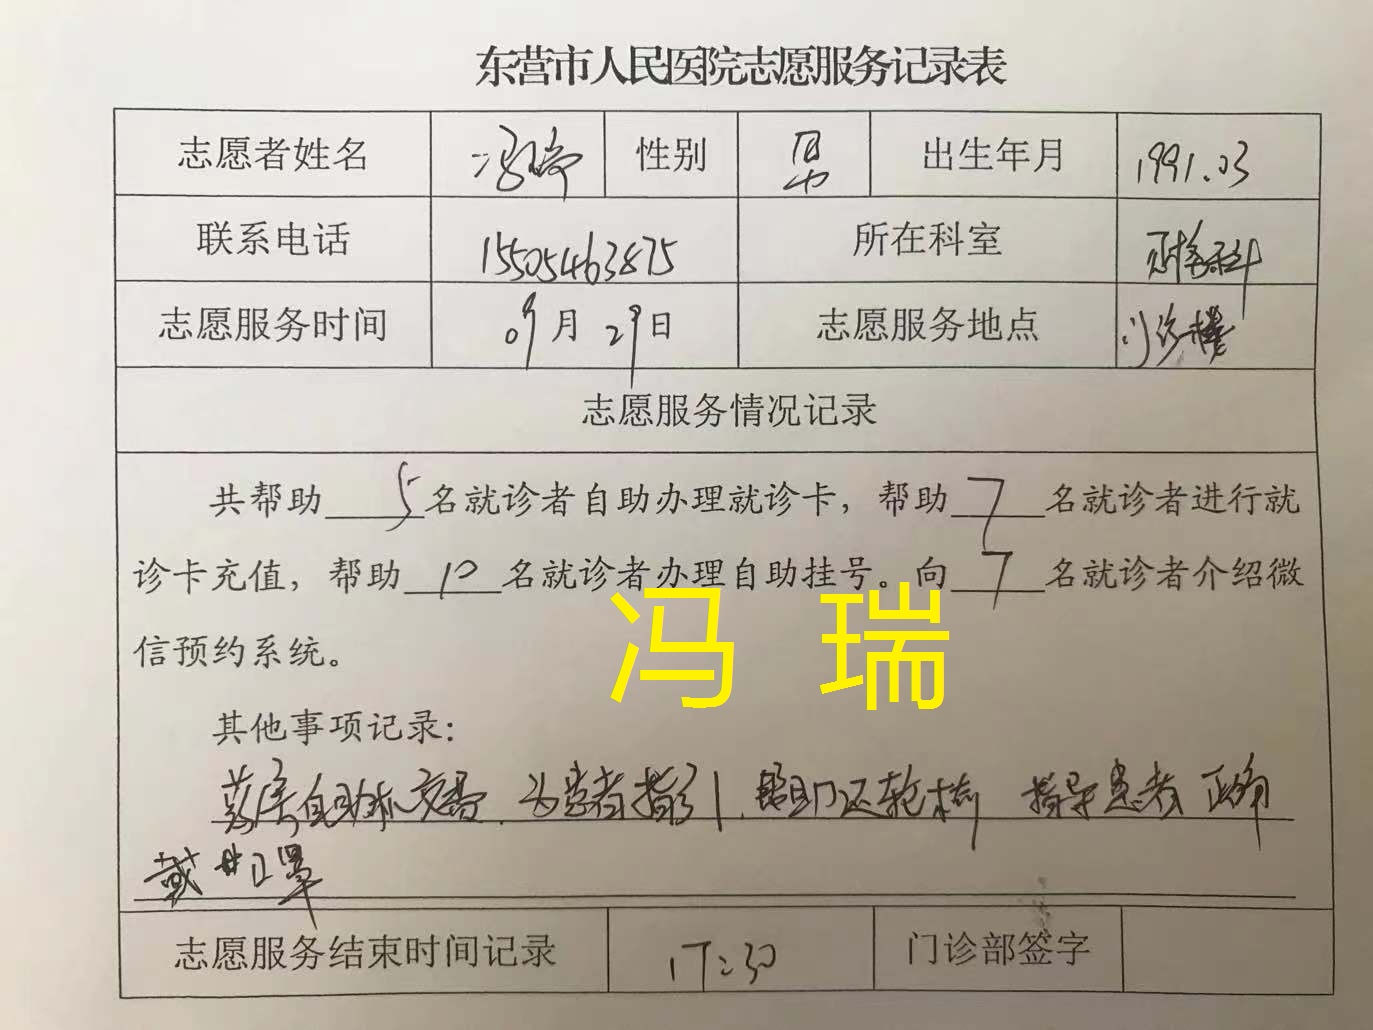 东营市人民医院志愿服务记录表
志愿者姓名 冯瑞 性别 男 出生年月 1991.03
联系电话 15505463875 所在科室 科
志愿服务时间 09月29日 志愿服务地点 门诊楼
志愿服务情况记录
共帮助5名就诊者自助办理就诊卡，帮助7名就诊者进行就
诊卡充值，帮助10名就诊者办理自助挂号。向7名就诊者介绍微
信预约系统。
冯 瑞
其他事项记录：
自助机 为患者指引，帮助还轮椅 指导患者正确
戴口罩
志愿服务结束时间记录 17:30 门诊部签字